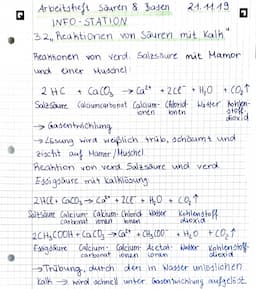 Arbeitsheft Säuren & Basen 21.11.19
INFO-STATION
3.2 "Reaktionen von Säuren mit Kalk"
Reaktionen von verd. Salzsäure mit Marmor
und einer Muschel:
2 HC + CaCO₃ → Ca²⁺ + 2Cl⁻ + H₂O + CO₂↑
Salzsäure Calciumcarbonat Calcium- Chlorid- Wasser Kohlen-
ionen ionen stoff-
dioxid
→ Gasentwicklung
→ Lösung wird weißlich trüb, schäumt und
zischt auf Marmor/Muschel
Reaktion von verd. Salzsäure und verd.
Essigsäure mit Kalklösung
2HCl + CaCO₃ → Ca²⁺ + 2Cl⁻ + H₂O + CO₂↑
Salzsäure Calcium- Calcium- Chlorid- Wasser Kohlenstoff-
carbonat ionen ionen dioxid
2CH₃COOH + CaCO₃ → Ca²⁺ + CH₃COO⁻ + H₂O + CO₂↑
Essigsäure Calcium- Calcium- Acetat- Wasser Kohlenstoff-
carbonat ionen ionen dioxid
→ Trübung, durch den in Wasser unlöslichen
Kalk → wird schnell unter Gasentwicklung aufgelöst